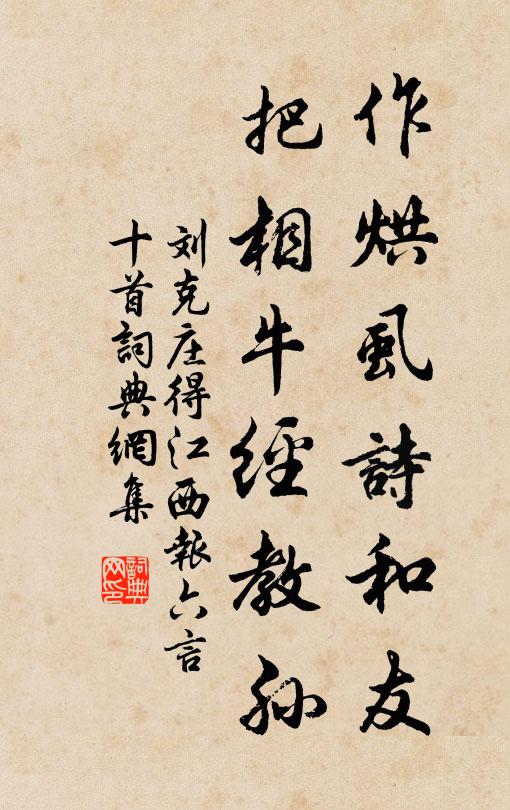 作烘虱詩和友
把相牛經教孫
刘克庄得江西報六言
十首詞典網集
詞典
网印